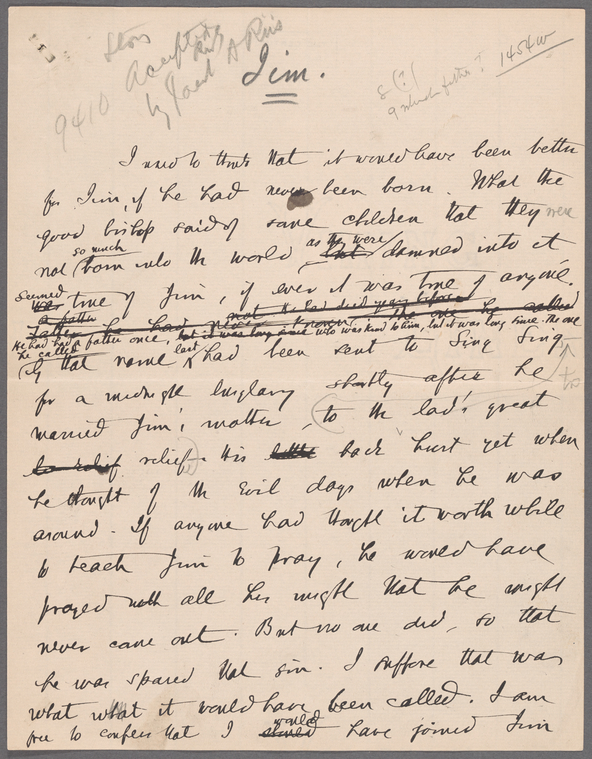 Story
Accepted
9410 by Jacob A Riis
Jim.
1454 w
I used to think that it would have been better
for Jim, if he had never been born. What the
good bishop said of some children that they were
not so much born into the world as they were damned into it
seemed true of Jim, if ever it was true of anyone.
He had had a father once, but it was long since. The one
he called by that name last had been sent to Sing Sing
for a midnight burglary shortly after he
married Jim's mother, to the lad's great
relief. His back hurt yet when
he thought of the evil days when he was
around. If anyone had thought it worth while
to teach Jim to pray, he would have
prayed with all his might that he might
never come out. But no one did, so that
he was spared that sin. I suppose that was
what what it would have been called. I am
free to confess that I would have joined Jim